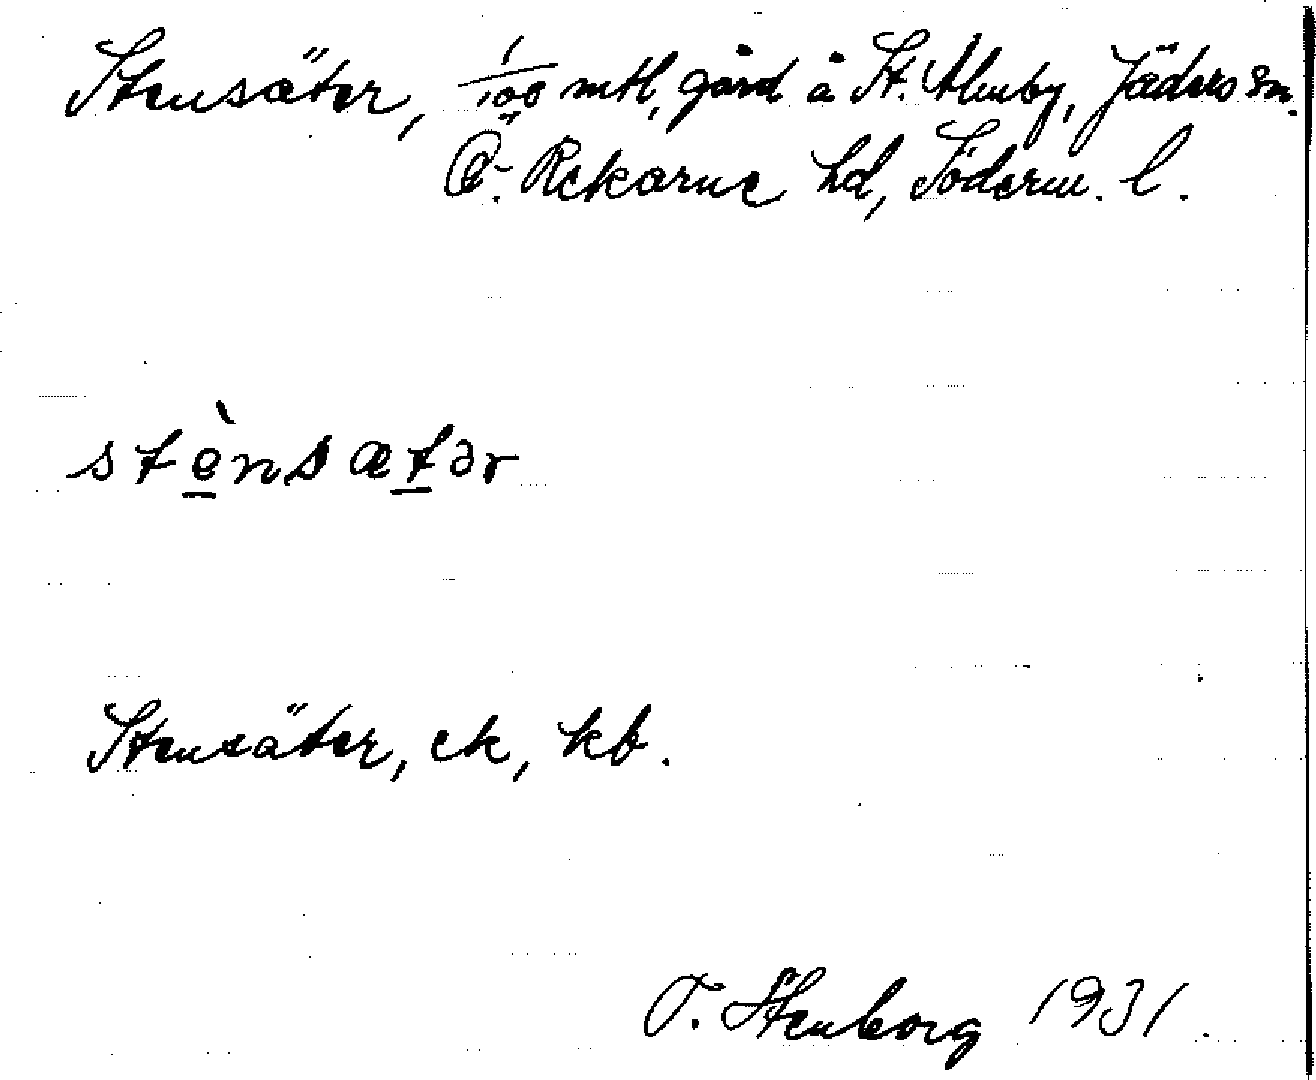 Stensäter, 1/100 mtl, gård å St. Alenby, Jäders sn.
Ö. Rekarne hd, Söderm. l.
stè̱nsæṯər
Stensäter, ek, kb.
T. Stenborg 1931.